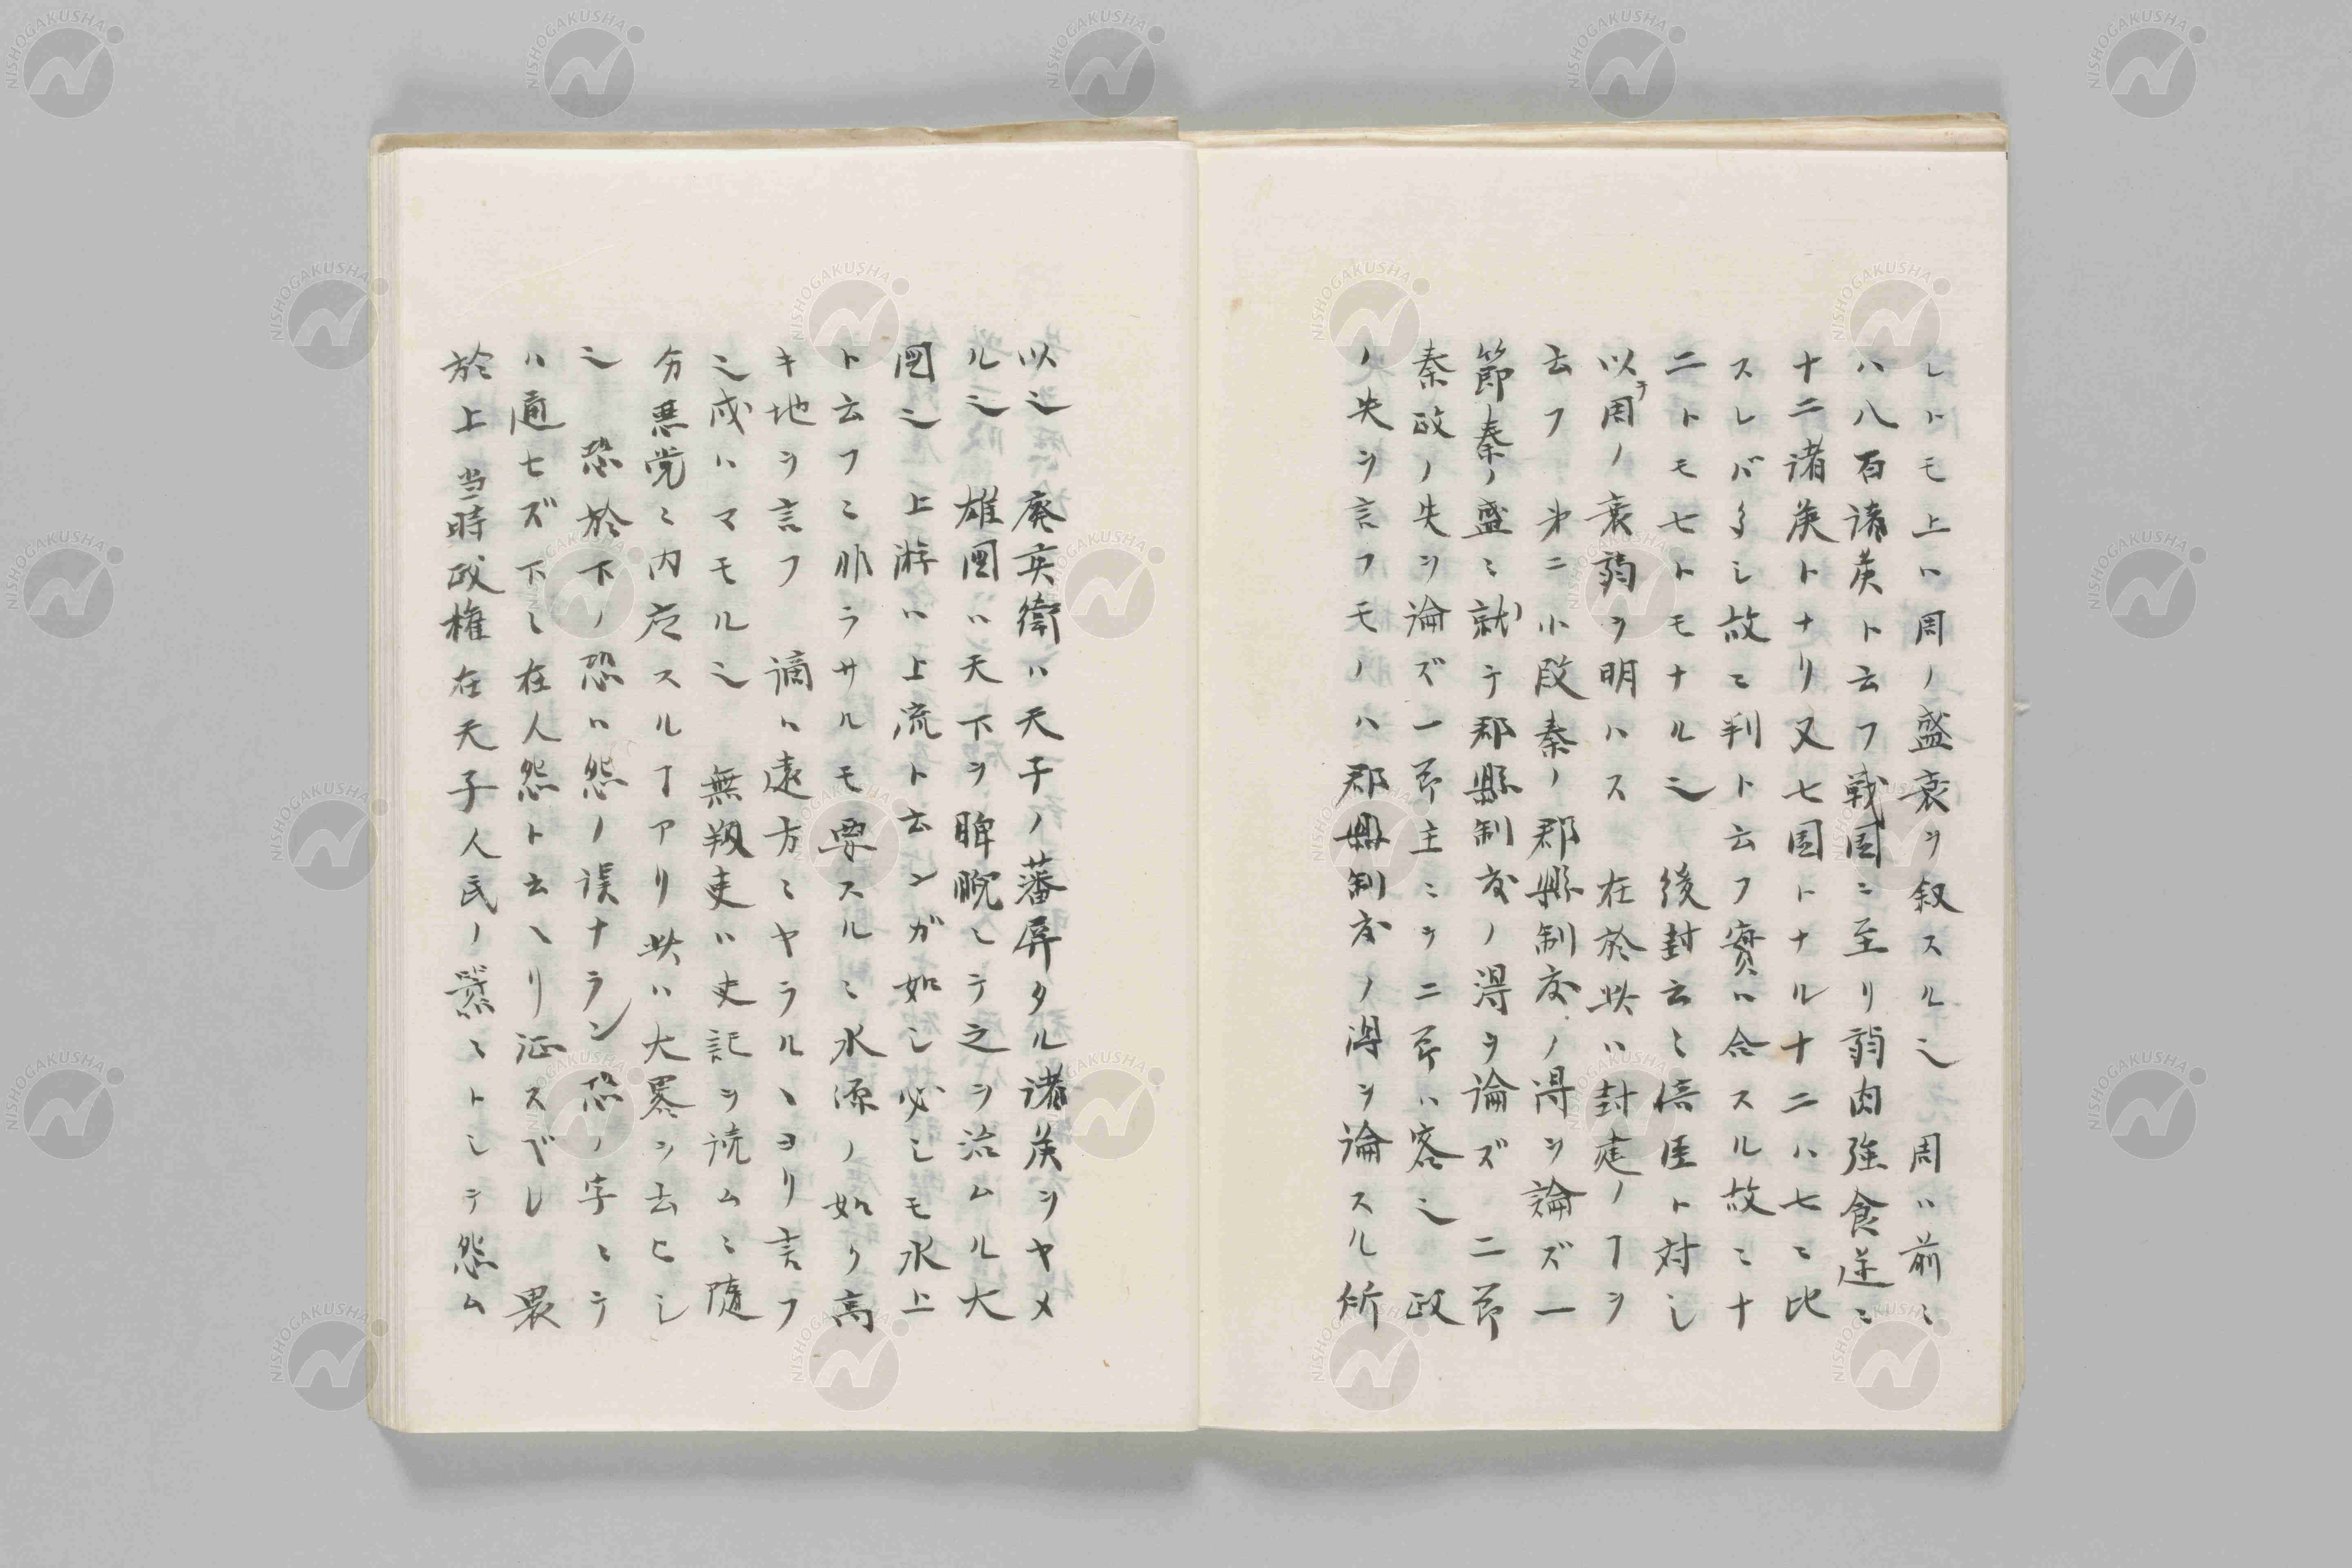 レトモ上ハ周ノ盛衰ヲ叙スル也 周ハ前ニ
ハ八百諸侯ト云フ戦国ニ至リ弱肉強食遂ニ
十二諸侯トナリ又七国トナル十二ハ七ニ比
スレバ多シ故ニ判ト云フ実ハ合スル故ニ十
二トモ七トモナル也 後封云々陪臣ト対シ
以テ周ノ衰弱ヲ明ハス 在於此ハ封建ノヿヲ
云フ 第二小段秦ノ郡縣制度ノ得ヲ論ズ一
節秦ノ盛ニ就テ郡縣制度ノ得ヲ論ズ 二節
秦政ノ失ヲ論ズ一節主ニヲ二節ハ客也 政
ノ失ヲ言フモノハ郡縣制度ノ得ヲ論スル所
以也 廃矦衛ハ天子ノ藩屏タル諸侯ヲヤメ
ル也 雄圏ハ天下ヲ睥睨シテ之ヲ治ムル大
圏也 上游ハ上流ト云ンガ如シ必シモ水上
ト云フニ非ラサルモ要スルニ水源ノ如ク高
キ地ヲ言フ 謫ハ遠方ニヤラルヽヨリ言フ
也戍ハマモル也 無叛吏ハ史記ヲ読ムニ随
分悪党ニ内応スルヿアリ此ハ大畧ヲ云ヒシ
也 恐於下ノ恐ハ怨ノ誤ナラン恐ノ字ニテ
ハ通セズ下ニ在人怨ト云ヘリ証スベシ 畏
於上当時政権在天子人民ノ業ニトシテ怨ム